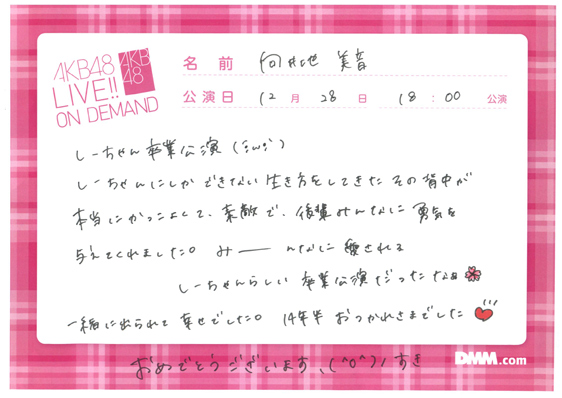 AKB48
LIVE!!
ON DEMAND
AKB
48
名 前 向井地 美音
公演日 12月 28日 18:00 公演
しーちゃん卒業公演(;ω;)
しーちゃんにしかできない生き方をしてきたその背中が
本当にかっこよくて、素敵で、後輩みんなに勇気を
与えてくれました。みーーんなに愛される
しーちゃんらしい卒業公演だったなぁ
一緒に出られて幸せでした。14年半おつかれさまでした
おめでとうございます、(^o^)ノすき
DMM.com